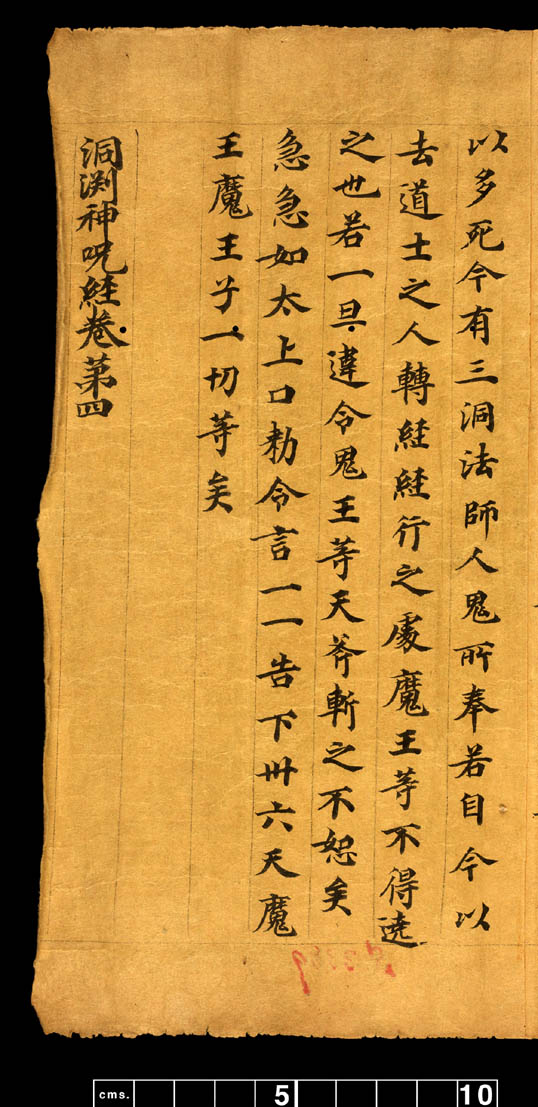 以多死今有三洞法師人鬼所奉若自今以
去道士之人轉経経行之處魔王等不得遶
之也若一旦違令鬼王等天斧斬之不恕矣
急急如太上口勑令言一一告下卅六天魔
王魔王子一切等矣
洞渕神呪経卷第四
cms. 5 10